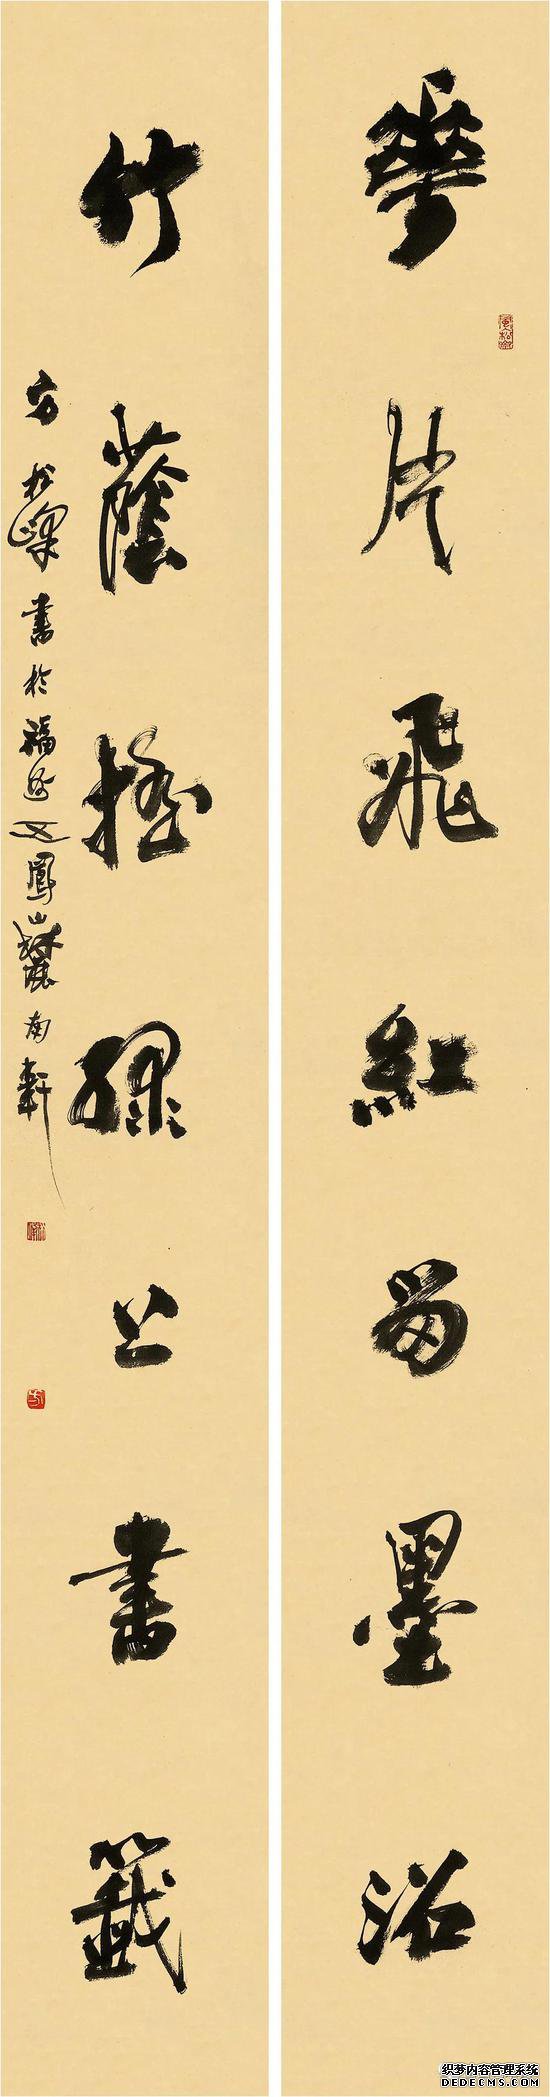 華片飛紅留墨沼
竹蔭搖綠上書籤
方松峰書於福州五鳳山麓南軒
织梦内容管理系统
DEDECMS.COM